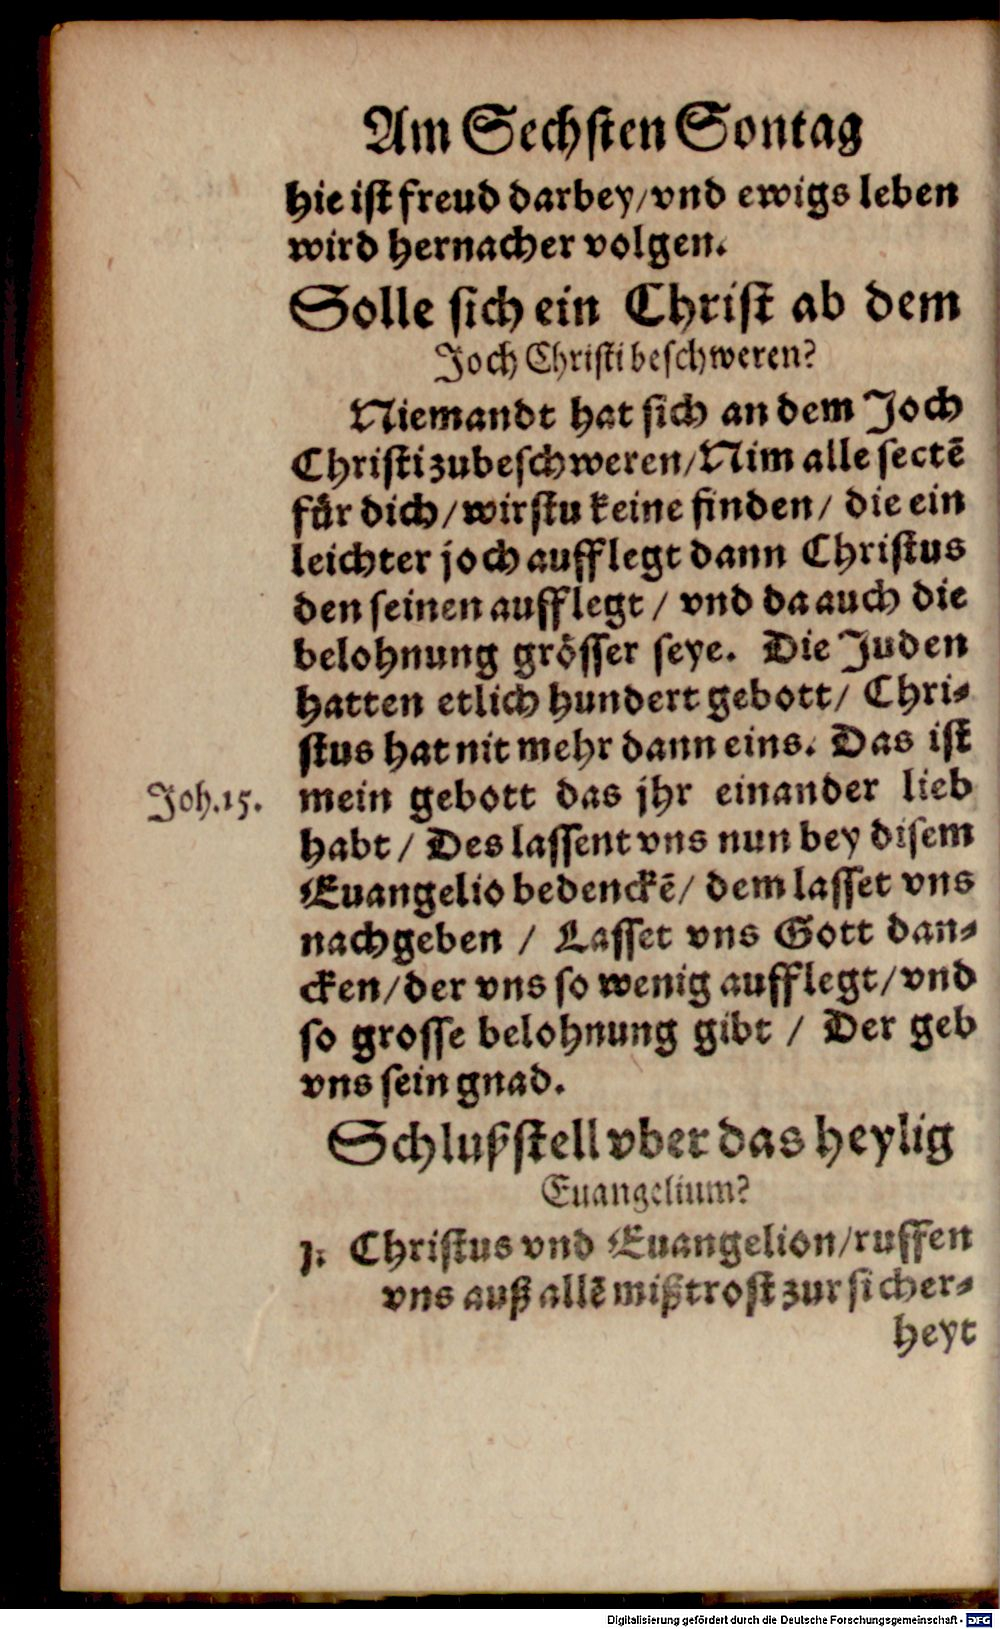 Am Sechsten Sontag
hie ist freud darbey/vnd ewigs leben
wird hernacher volgen.
Solle sich ein Christ ab dem
Joch Christi beschweren?
Niemandt hat sich an dem Joch
Christi zubeschweren/Nim alle sectē
für dich/wirstu keine finden/ die ein
leichter joch aufflegt dann Christus
den seinen aufflegt / vnd da auch die
belohnung grösser seye. Die Juden
hatten etlich hundert gebott/ Chri-
stus hat nit mehr dann eins. Das ist
Joh.15. mein gebott das jhr einander lieb
habt / Des lassent vns nun bey disem
Euangelio bedenckē/ dem lasset vns
nachgeben / Lasset vns Gott dan-
cken/der vns so wenig aufflegt/vnd
so grosse belohnung gibt / Der geb
vns sein gnad.
Schlußstell vber das heylig
Euangelium?
1. Christus vnd Euangelion/ruffen
vns auß allē mißtrost zur sicher-
heyt
Digitalisierung gefördert durch die Deutsche Forschungsgemeinschaft - DFG